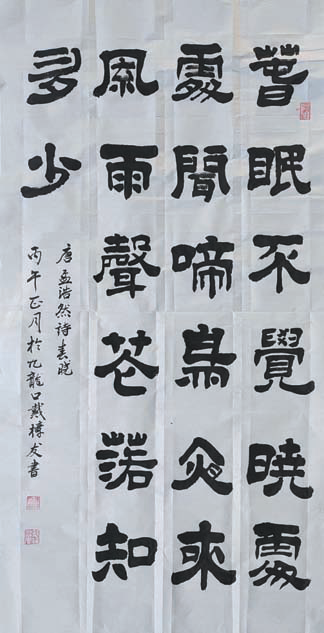 春眠不覺曉處
處聞啼鳥夜來
風雨聲花落知
多少
唐孟浩然詩春晓
丙午正月於九龍口戴樽友書